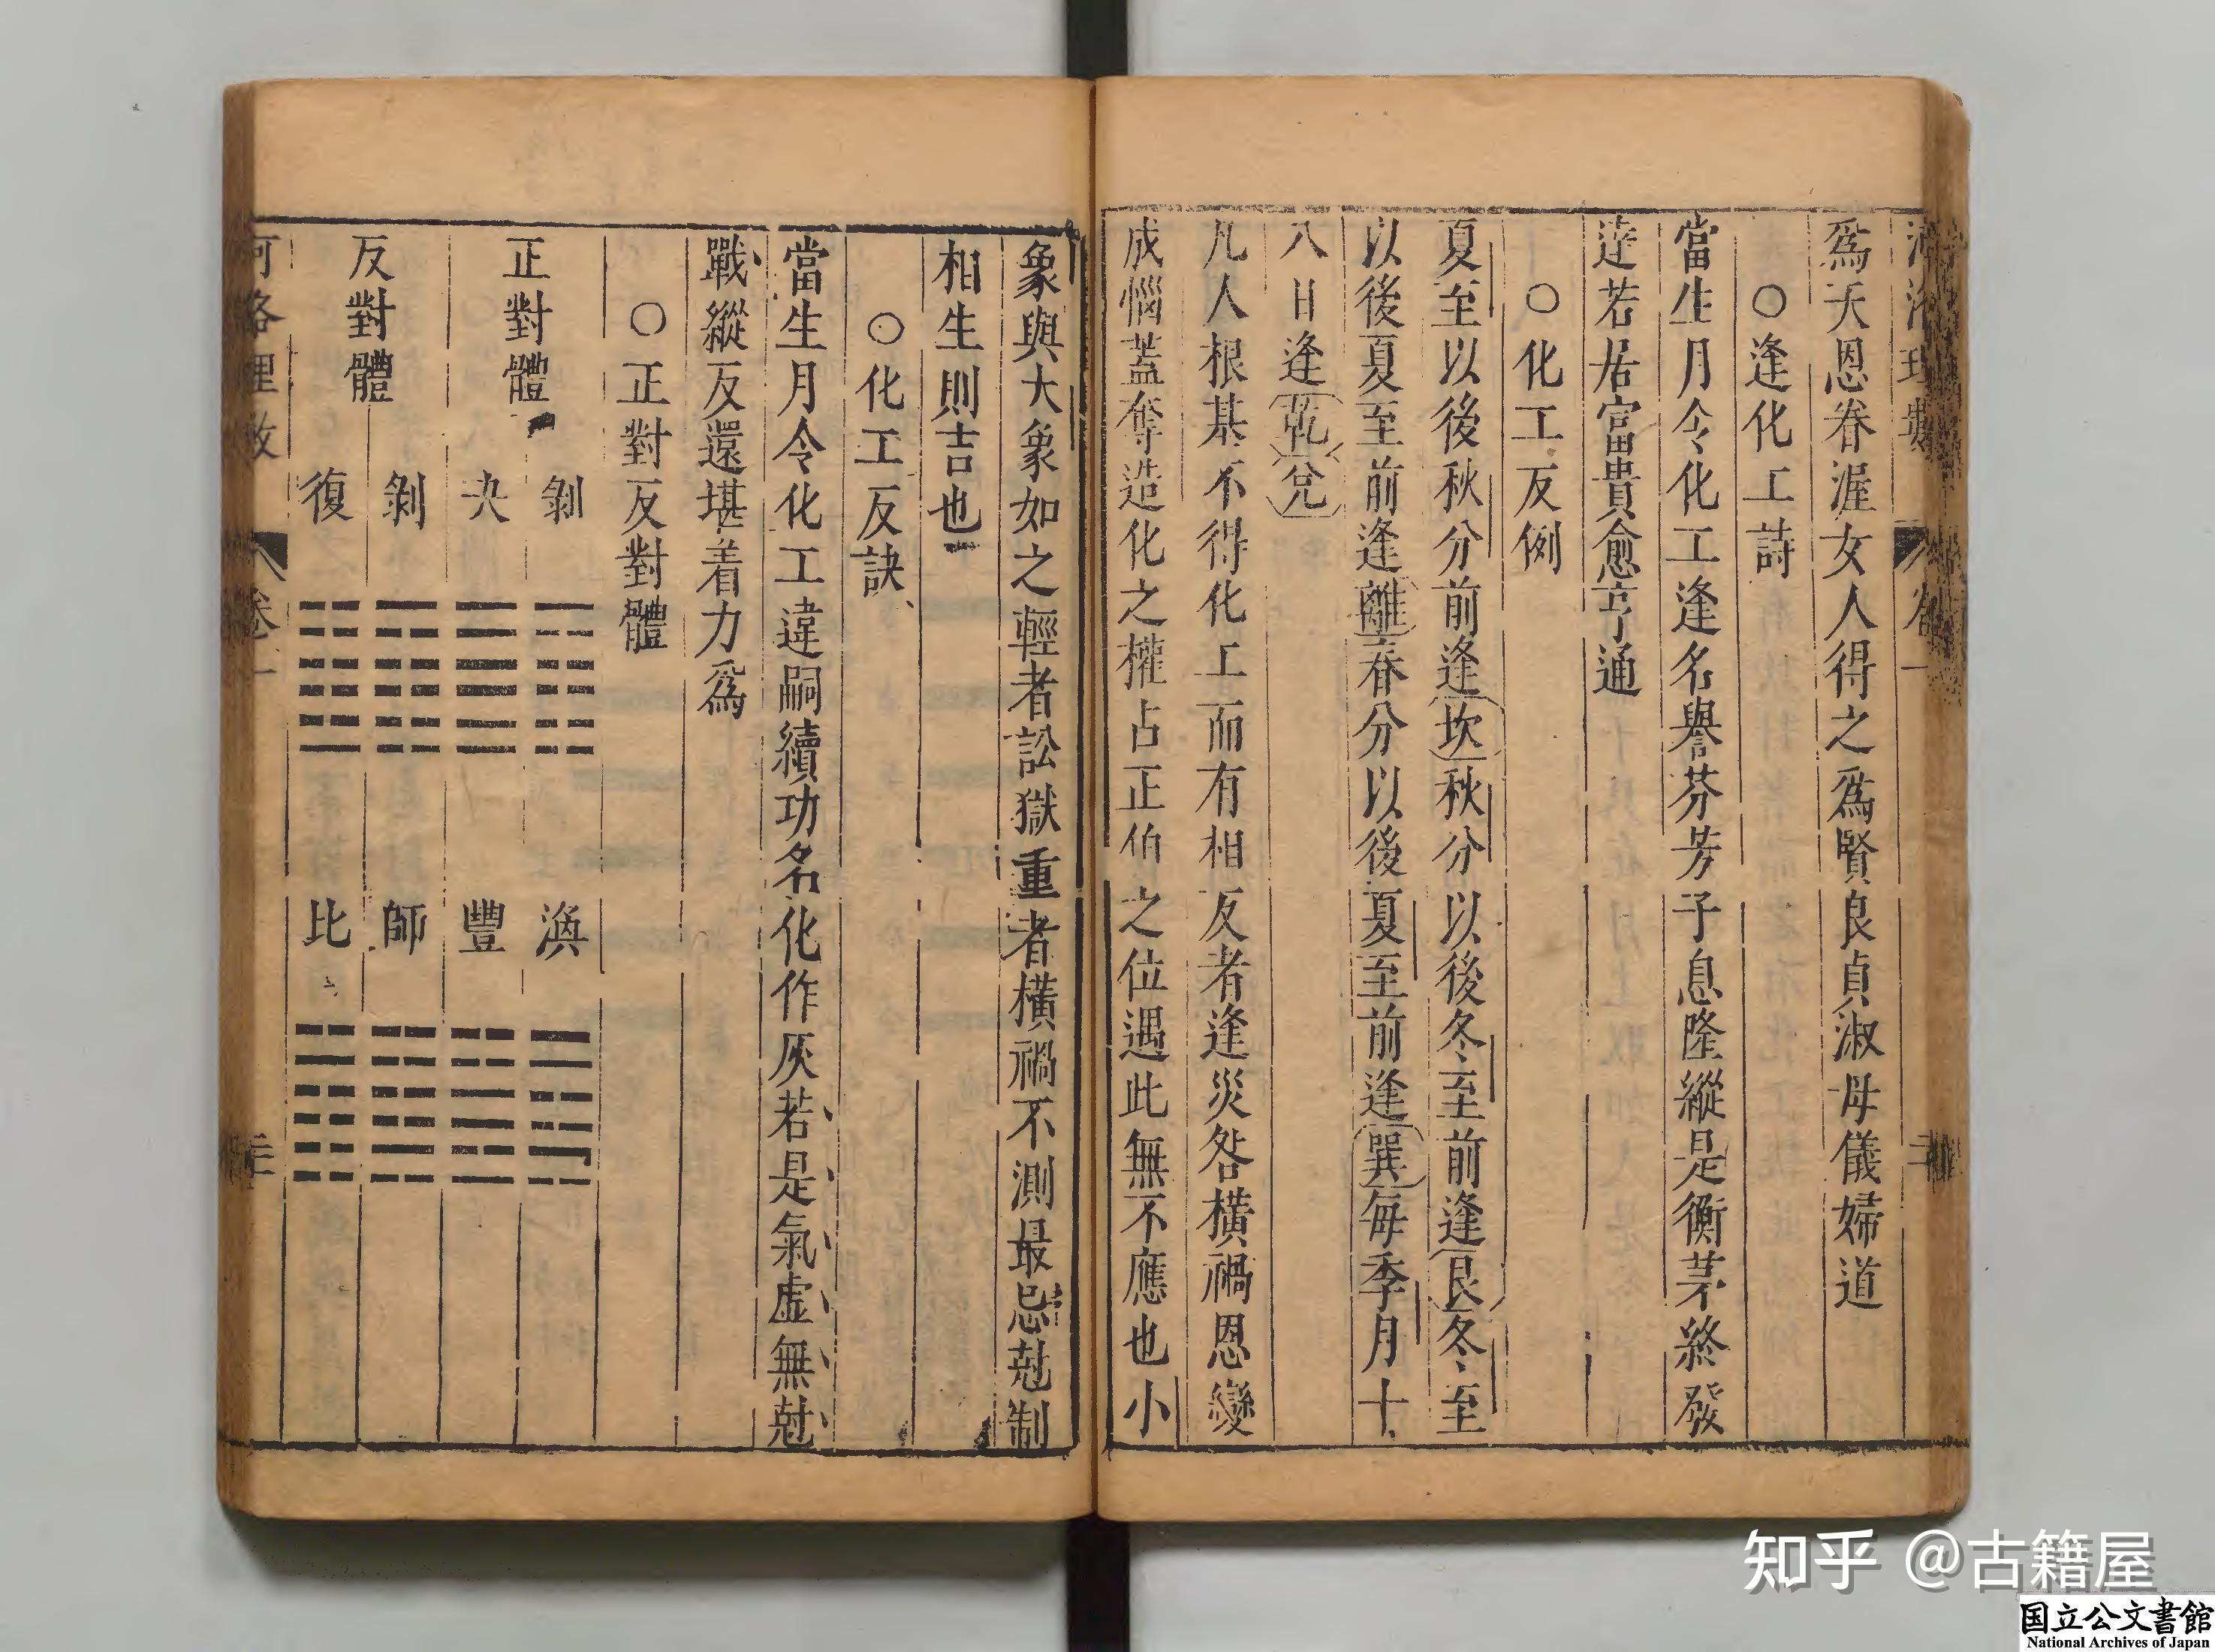 爲天恩眷渥女人得之爲賢良貞淑母儀婦道
○逢化工詩
當生月令化工逢名譽芬芳子息隆縱是衡茅終發
達若居富貴愈亨通
○化工反例
夏至以後秋分前逢坎秋分以後冬至前逢艮冬至
以後夏至前逢離春分以後夏至前逢巽每季月十
八日逢乾兌
凡人根基不得化工而有相反者逢災咎橫禍恩變
成惱蓋奪造化之權占正伯之位遇此無不應也小
象與大象如之輕者訟獄重者橫禍不測最忌尅制
相生則吉也
○化工反訣
當生月令化工違嗣續功名化作灰若是氣虛無尅
戰縱反還堪着力爲
○正對反對體
正對體
剝
夬
渙
豐
反對體
剝
復
師
比
卷一
知乎 @古籍屋
国立公文書館
National Archives of Japan